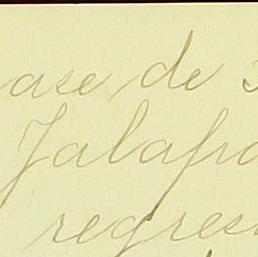 ase de
Jalapa
regres